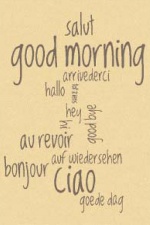 salut
good morning
arrivederci
hallo
hey
good bye
au revoir
hi
auf wiedersehen
bonjour
ciao
goede dag